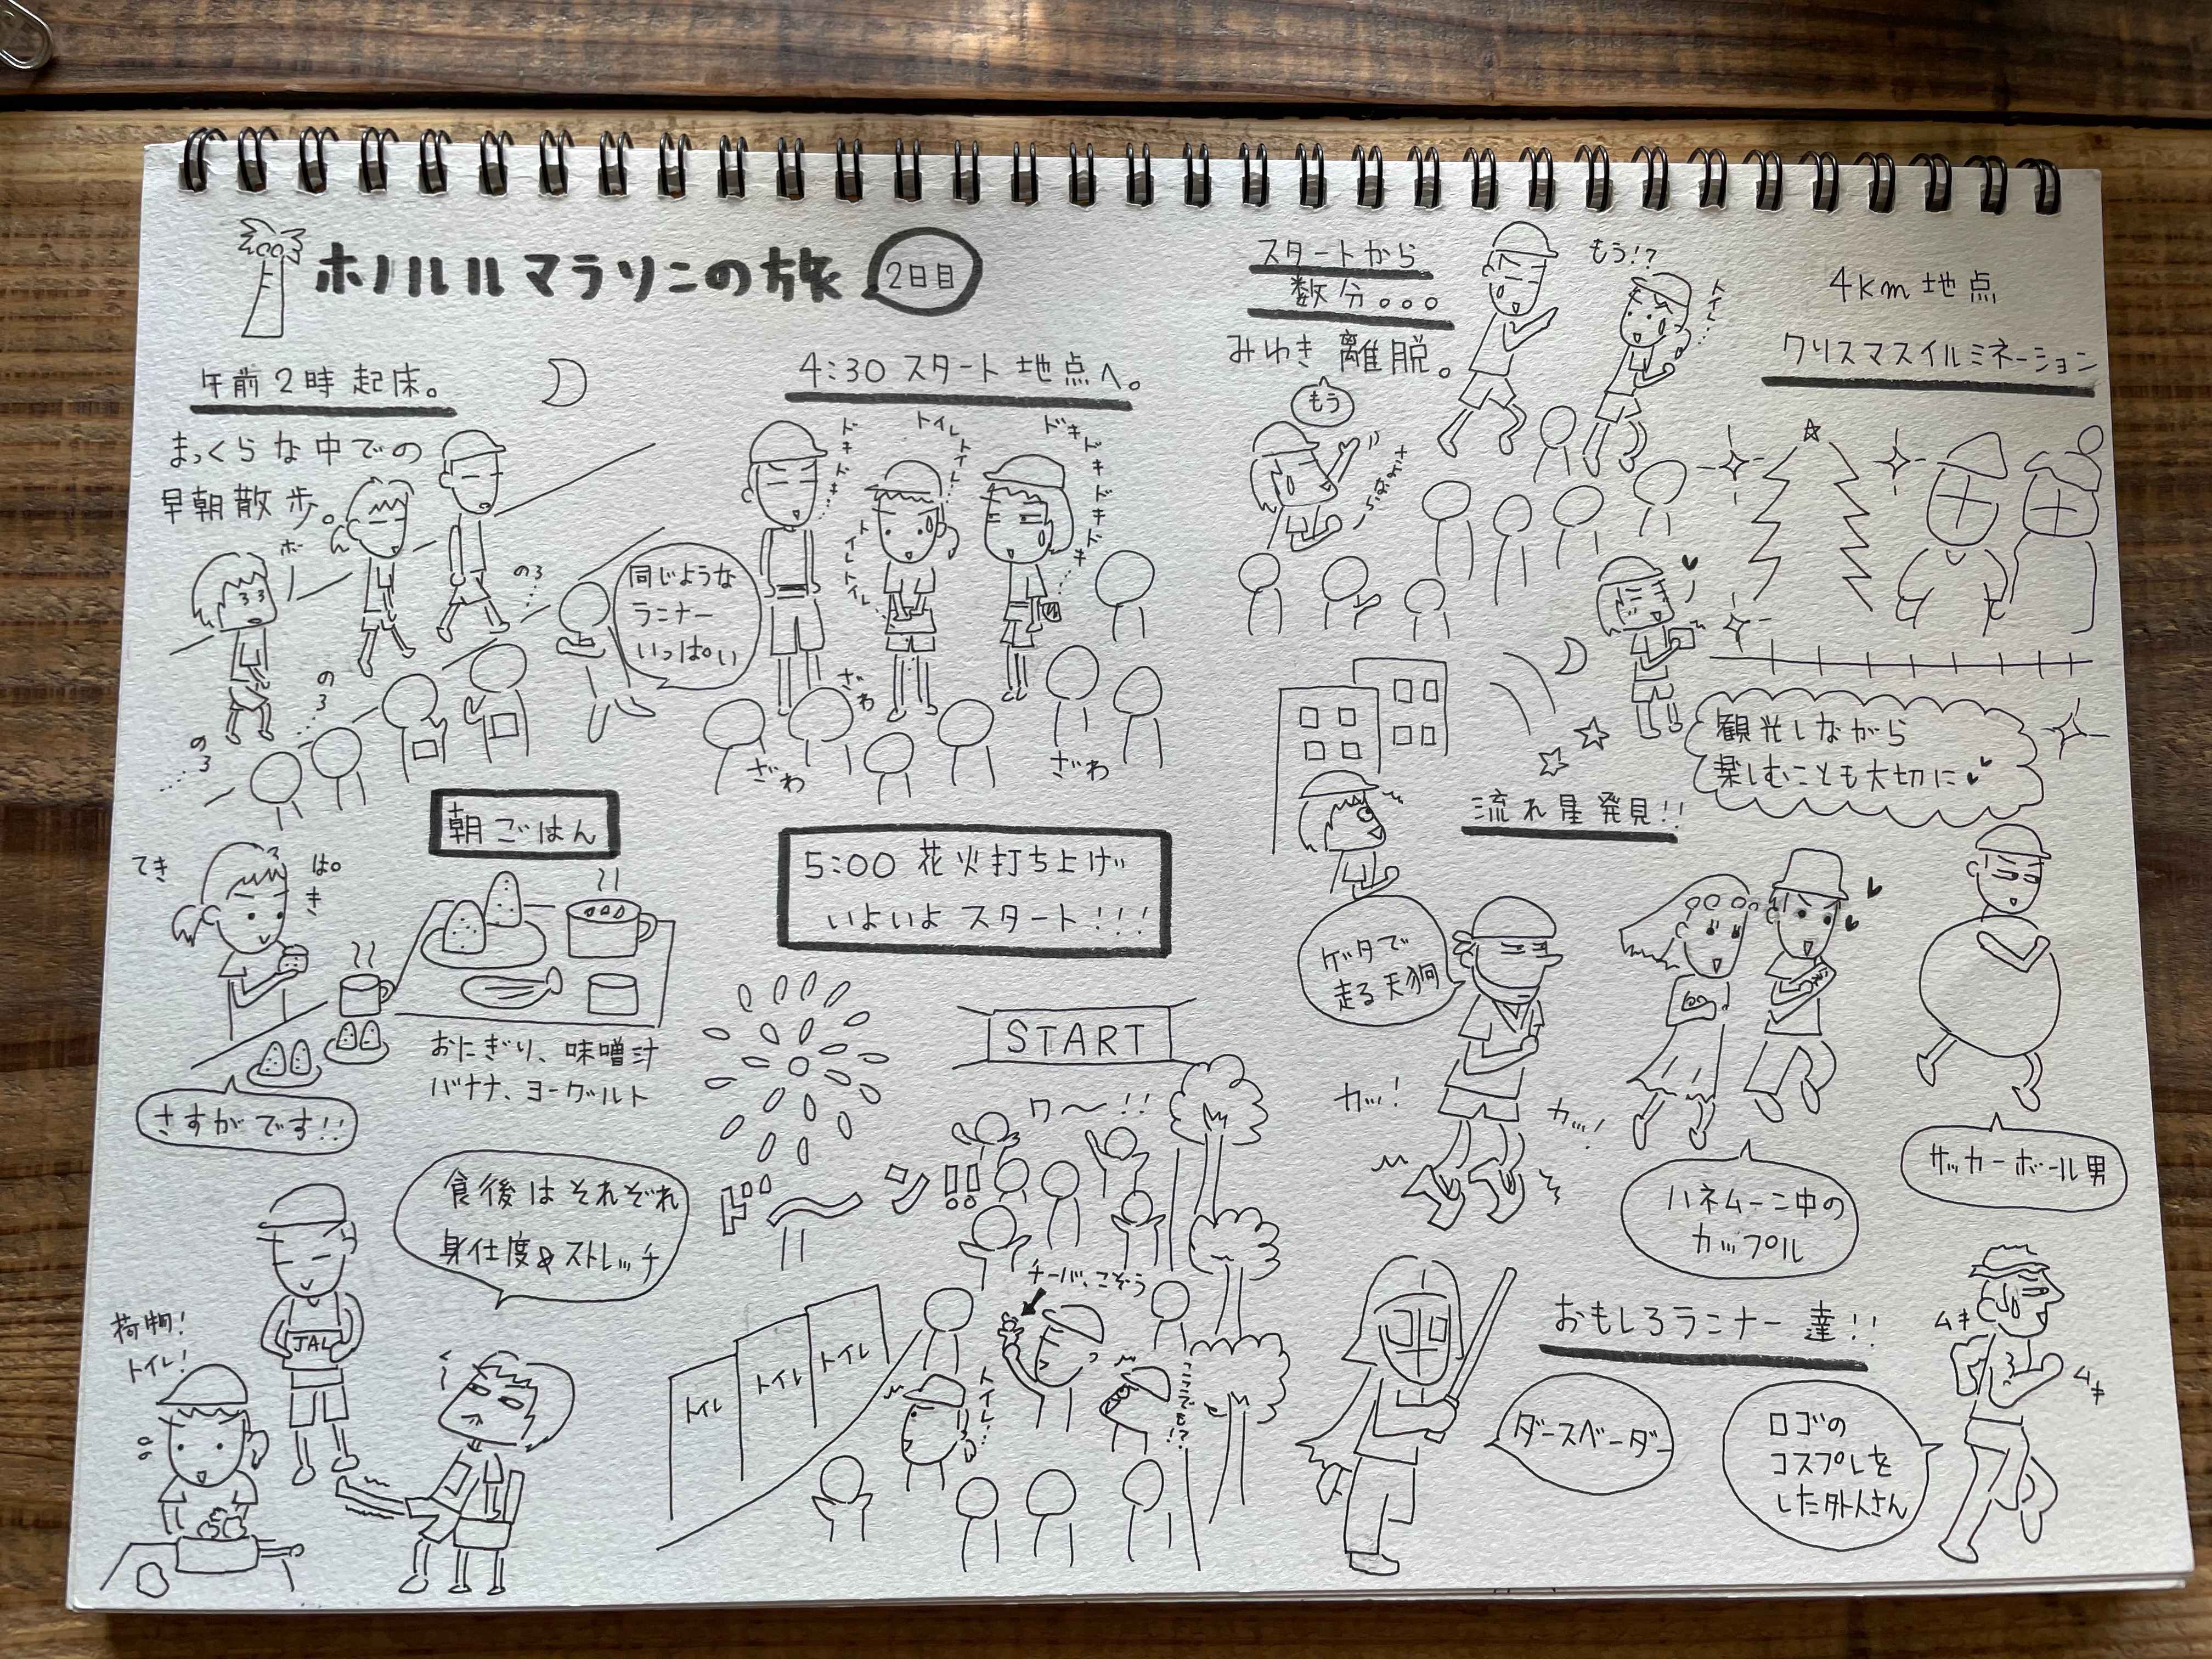 ホノルルマラソンの旅 2日目
午前2時起床。
まっくらな中での
早朝散歩。
ホー
ん
のろ
のろ
のろ
同じような
ランナー
いっぱい
朝ごはん
てき
ぱき
おにぎり、味噌汁
バナナ、ヨーグルト
さすがです!!
食後はそれぞれ
身仕度&ストレッチ
荷物!
トイレ!
JAL
4:30 スタート地点へ。
ドキドキ
トイレトイレ
トイレトイレ
ドキドキドキドキ
ざわ
ざわ
ざわ
5:00 花火打ち上げ
いよいよ スタート!!!
START
ワ〜!!
ド〜ン!!
チーバくんこぞう
トイレ
トイレ
トイレ
トイレ!
ここでも!?
スタートから
数分。。。
みゆき離脱。
もう
もう!?
トイレ…
4km地点
クリスマスイルミネーション
観光しながら
楽しむことも大切に
流れ星発見!!
ゲタで
走る天狗
カッ!
カッ!
ハネムーン中の
カップル
サッカーボール男
おもしろランナー達!!
ダースベーダー
ムキ
ムキ
ロゴの
コスプレを
した外人さん